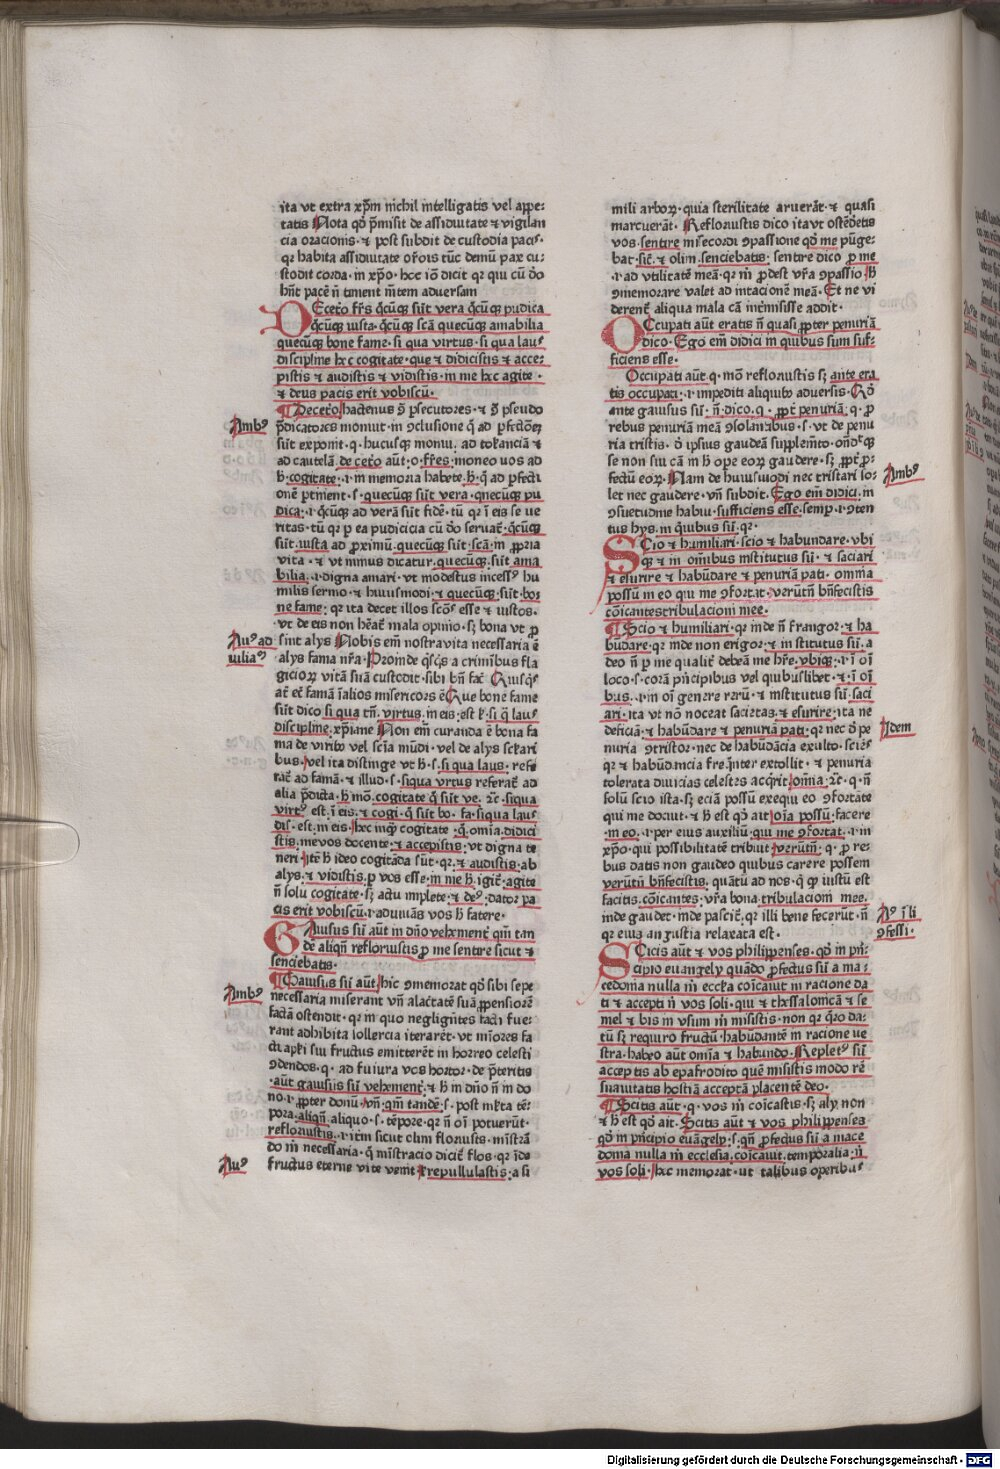 ita vt extra xp̄m nichil intelligatis vel appe-
tatis Nota qȝ p̄misit de assiduitate ⁊ vigilan
cia oracionis · ⁊ post subdit de custodia pacis ·
qr habita assiduitate or̄ois tūc demū pax cu-
stodit corda · in xp̄o · hoc iō dicit qr qui cū dō
hn̄t pacē n̄ timent mētem aduersam
DEcetō fr̄s q̄cūqȝ sūt vera q̄cūqȝ pudica
q̄cūqȝ iusta · q̄cūqȝ sc̄ā quecūqȝ amabilia
quecūqȝ bone fame · si qua virtus · si qua lauˢ
discipline hec cogitate · que ⁊ didicistis ⁊ acce-
pistis ⁊ audistis ⁊ vidistis · in me hec agite ·
⁊ deus pacis erit vobiscū ·
Decetō hactenus ꝯ̄ p̄secutores · ⁊ ꝯ̄ pseudo
Ambꝰ
p̄dicatores monuit · in ꝯclusione q̄ ad p̄fectōeȝ
sūt exponit · q · hucusqȝ monui · ad tolerāciā ⁊
ad cautelā · de cetō aūt · o · fr̄es · moneo vos ad
h̄ · cogitate · ı · in memoria habete · h̄ · q̄ ad p̄fecti
onē ꝑtinent · s · quecūqȝ sūt vera · quecūqȝ pu
dica · ı · q̄cūqȝ ad verā sūt fidē · tū qr ī eis se ve
ritas · tū qr ꝑ ea pudicicia cū dō seruat̄ · q̄cūqȝ
sūt · iusta ad ꝓximū · quecūqȝ sūt · scā · in ꝓpria
vita · ⁊ vt minus dicatur · quecūqȝ · sūt ama
bilia · ı · digna amari · vt modestus incessꝰ hu
milis sermo · ⁊ huiusmodi · ⁊ quecūqȝ · sūt · bo-
ne fame · qr ita decet illos sc̄oˢ esse ⁊ iustos ·
vt de eis non hēat̄ mala opinio · sȝ bona vt ꝓ
Auꝰ ad
sint alys Nobis em̄ nostra vita necessaria ē
iuliaꝫ
alys fama nr̄a · Proinde q̄sq̄s a criminibus fla
gicioꝝ vitā suā custodit · sibi bn̄ fac̄ Quisq̄ˢ
at̄ et famā ī alios misericors ē Que bone fame
sūt dico si qua tn̄ · virtus · in eis · est ⁊ · si q̄ lauˢ
discipline · xp̄iane Non em̄ curanda ē bona fa
ma de virib̄ · vel sciā mūdi · vel de alys selcari
bus · vel ita distinge vt h̄ · s · si qua laus · refe
rat̄ ad famā · ⁊ illud · s · siqua vrtus referat̄ ad
alia p̄dicta · h̄ mō · cogitate q̄ sūt ve · ⁊c̄ · siqua
virtꝰ est · ī eis · ⁊ cogi · q̄ sūt bo · fa · si qua lauˢ
dis · est · in eis · hec inq̄ cogitate · q̄ · omīa didici
stis · me vos docente · ⁊ accepistis · vt digna te
neri · itē h̄ ideo cogitāda sūt · qr · ⁊ audistis · ab
alys · ⁊ vidistis · ꝑ vos esse · in me h̄ · igit̄ · agite
n̄ solū cogitate · sȝ actu implete · ⁊ deꝰ · dator pa
cis erit vobiscū · ı · adiuuās vos h̄ fatere ·
GAuisus sū aūt in dn̄o vehement̄ qm̄ tan
de aliqn̄ refloruistis ꝓ me sentire sicut ⁊
senciebatis ·
Gauisus sū aūt hic ꝯmemorat qȝ sibi sepe
Ambꝰ
necessaria miserant vn̄ alacritatē suā ꝓpensiorē
factā ostendit · qr in quo negligētes facti fue-
rant adhibita sollercia iterarēt · vt in mores fa
cti apl̄i sui fructus emitterēt in horreo celesti
ꝯdendos · q · ad futura vos hortor · de p̄teritis
· aūt gauisus sū vehement̄ · ⁊ h̄ in dn̄o n̄ in do
no · ı · ꝓpter donū · vn̄ · qm̄ tandē · s · post ml̄ta tē-
pora · aliqn̄ · aliquo · s · tēpore · qr n̄ oī potuerūt ·
refloruistis · ı · itē sicut olim floruistis · mīstrā
do m̄ necessaria · q̄ mīstracio dicit̄ flos · qr īde
Auꝰ
fructus eterne vite venit · repullulastis · a si
mili arboꝝ · quia sterilitate aruerāt · ⁊ quasi
marcuerāt · Refloruistis dico ita vt ostēdetis
vos · sentire misecordi ꝯpassione qȝ me pūge-
bat · sic̄ · ⁊ olim · senciebatis · sentire dico ꝓ me
· ı · ad vtilitatē meā · qr m̄ ꝓdest vr̄a ꝯpassio · h̄
ꝯmemorare valet ad intacionē meā · Et ne vi
derent̄ aliqua mala cā int̄misisse addit ·
OCcupati aūt eratis n̄ quasi ꝓpter penuriā
dico · Ego em̄ didici in quibus sum suf-
ficiens esse ·
Occupati aūt · q · mō refloruistis sȝ ante era
tis occupati · ı · impediti aliquib̄ aduersis · Qȝ
ante gauisus sū · n̄ · dico · q · ꝓpt̄ penuriā · q · ꝓ
rebus penuriā meā ꝯsolantibus · s · vt de penu
ria tristis · dȝ ipsius gaudeā supplemēto · ondēs qȝ
se non sui cā in h̄ ope eoꝝ gaudere · sȝ ꝓpt̄ ꝓ-
Ambꝰ
fectū eoꝝ · Nam de huiusmodi nec tristari so-
let nec gaudere · vn̄ subdit · Ego em̄ didici · in
ꝯsuetudine habui · sufficiens esse · semp · ı · ꝯten
tus hys · in quibus sū · qr ·
SCio ⁊ humiliari · scio ⁊ habundare · vbi
qȝ ⁊ in om̄ibus institutus sū · ⁊ saciari
⁊ esurire ⁊ habūdare ⁊ penuriā pati · omnia
possū in eo qui me ꝯfortat · verūtn̄ bn̄fecistis
cōicantes tribulacioni mee ·
Scio ⁊ humiliari · qr inde n̄ frangor · ⁊ ha
budare · qr inde non erigor · ⁊ in stitutus sū · a
deo n̄ ꝑ me qualit̄ debeā me hr̄e · vbiqȝ · ı · ī oī
loco · s · corā p̄ncipibus vel quibuslibet · ⁊ · ī oī
bus · ı · in oī genere rerū · ⁊ institutus sū · saci
ari · ita vt nō noceat sacietas · ⁊ esurire · ita ne
Idem
deficiā · ⁊ habūdare ⁊ penuriā pati · qr nec dȝ pe
nuria ꝯtristor · nec de habūdācia exulto · sciēˢ
qr ⁊ habūdancia fre q̄nter extollit · ⁊ penuria
tolerata diuicias celestes acq̄rit · om̄ia · ⁊c̄ · q · n̄
solū scio ista · sȝ eciā possū exequi eo ꝯfortāte
qui me docuit · ⁊ h̄ est qȝ ait · oīa possū · facere
· in eo · ı · per eius auxiliū · qui me ꝯfortat · ı · in
xp̄o · qui possibilitatē tribuit · verūtn̄ · q · ꝓ re-
bus datis non gaudeo quibus carere possem
verūtn̄ bn̄fecistis · quātū ad nos · q̄ qȝ iustū est
facitis · cōicantes · vr̄a bona · tribulacioni mee ·
Aꝰ ī li
inde gaudet · inde pascit̄ · qr illi bene fecerūt · n̄
ꝯfessi ·
qr eius angustia relaxata est ·
SCitis aūt ⁊ vos philippenses · qȝ in p̄n-
cipio euangely quādo ꝓfectus sū a ma-
cedonia nulla m̄ ecclia cōicauit in racione da
ti ⁊ accepti n̄ vos soli · qui ⁊ thessalonicā ⁊ se
mel ⁊ bis in vsum m̄ misistis · non qr q̄ro da-
tū sȝ requiro fructū · habūdantē in racione ve
stra · habeo aūt om̄ia ⁊ habundo · Repletꝰ sū
acceptis ab epafrodito que misistis modo rē
suauitatis hostiā acceptā placentē deo ·
Scitis aūt · q · vos m̄ cōicastis · sȝ aly non
⁊ h̄ est qȝ ait · Scitis aūt ⁊ vos philippenses
qȝ in p̄ncipio euāgely · s · qn̄ ꝓfectus sū a mace
donia nulla m̄ ecclesia · cōicauit · temporalia · n̄
vos soli · hec memorat · ut talibus operibuˢ
Digitalisierung gefördert durch die Deutsche Forschungsgemeinschaft - DFG